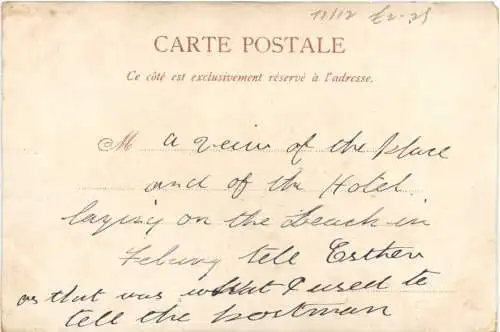 11/12 £2-25
CARTE POSTALE
Ce côté est exclusivement réservé à l'adresse.
M a veiw of the place
and of the Hotel
laying on the Beach in
tell Esther
as that was what I used to
tell the postman